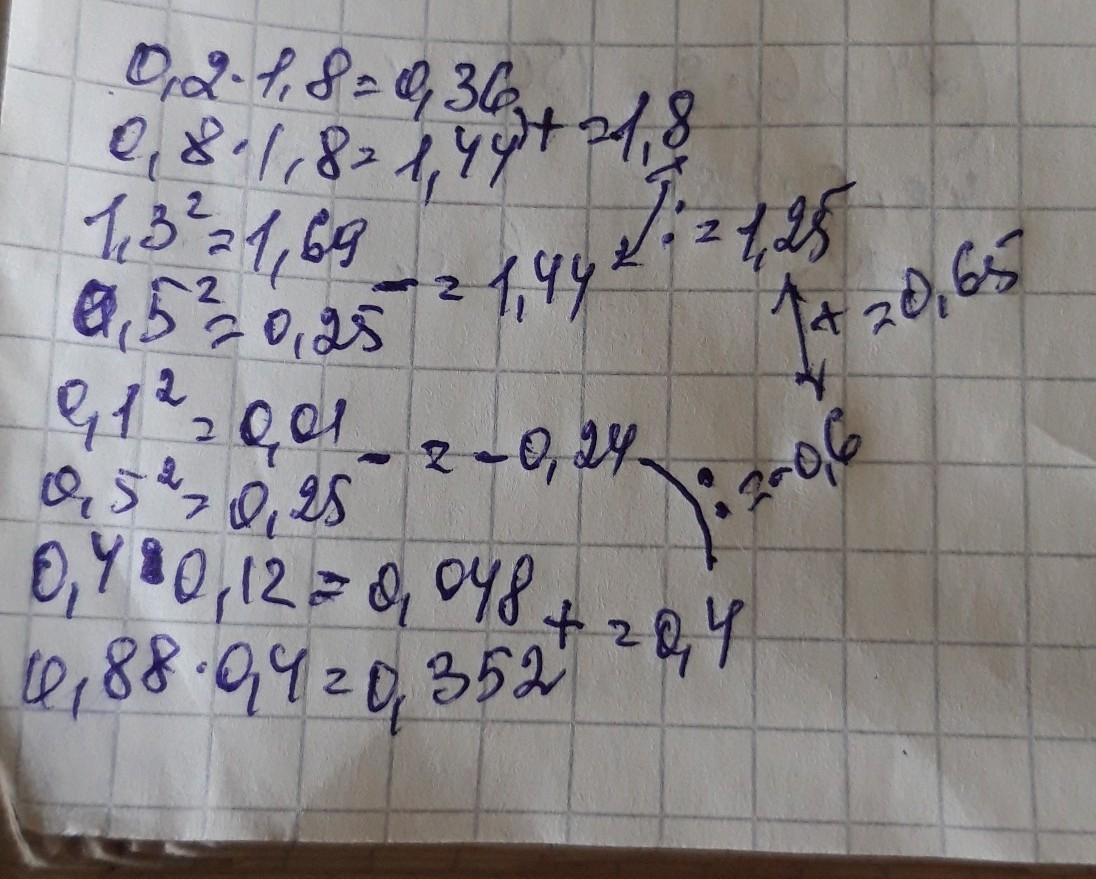 0,2·1,8=0,36
0,8·1,8=1,44 + =1,8
1,3²=1,69 : =1,25
0,5²=0,25 - =1,44
+ =0,65
0,1²=0,01
0,5²=0,25 - =-0,24 : =-0,6
0,4·0,12=0,048
0,88·0,4=0,352 + =0,4